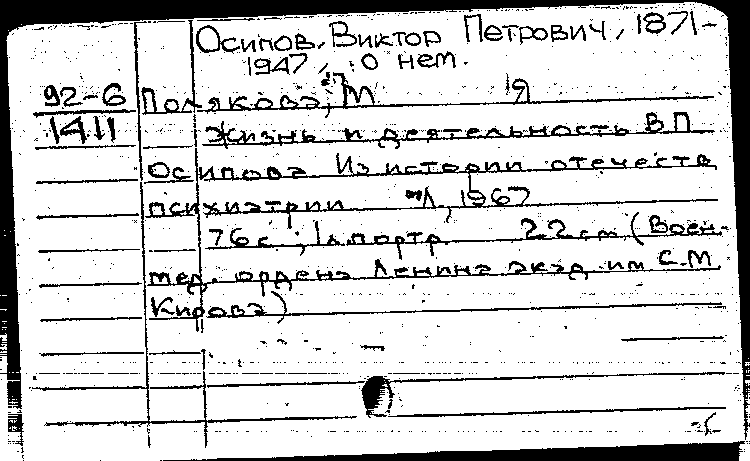 Осипов, Виктор Петрович, 1871-
1947, о нем.
92-6
1411
Полякова, М Я
Жизнь и деятельность В П
Осипова Из истории отечеств
психиатрии Л, 1967
76 с; 1 л. портр 22 cm (Воен-
мед. ордена Ленина акад им С.М
Кирова)